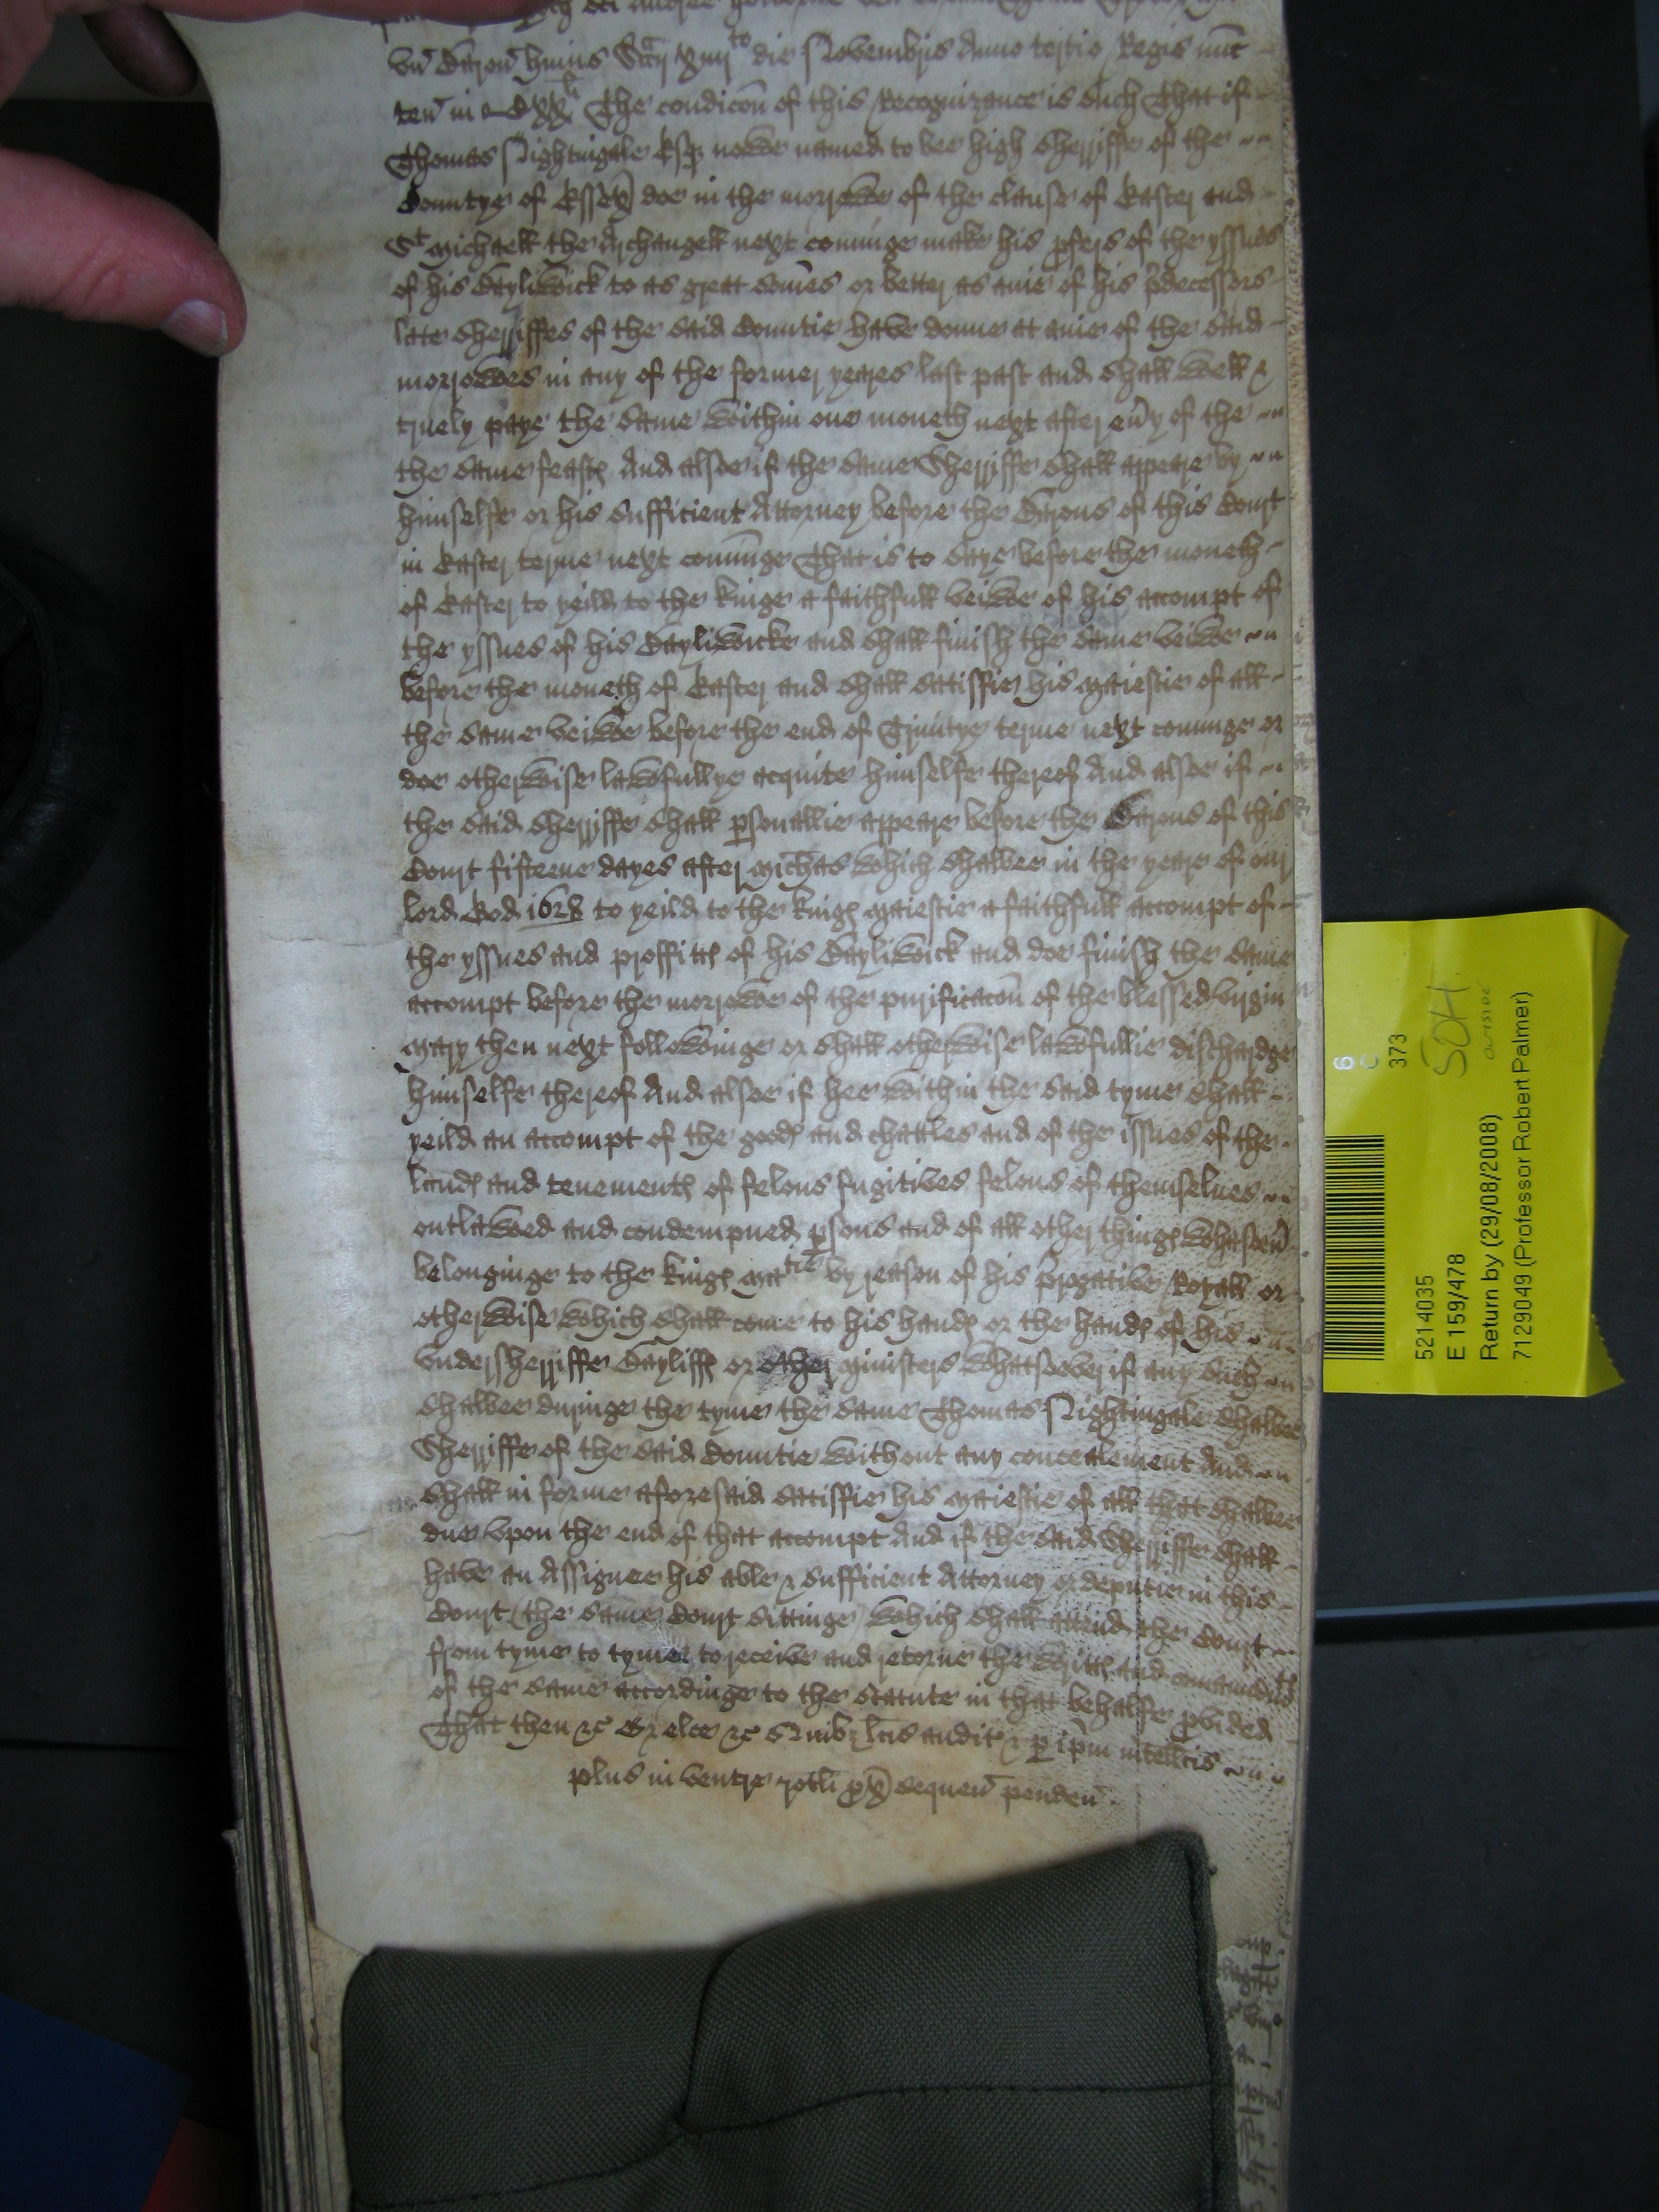 vn̄ Baron̄ huius Scc̄ij xiiijto die Novembris Anno tertio Regis nūc
The condicōn of this Recognizance is such That if
Thomas Nightingale Esq nowe named to bee high Sherriffe of the
Countye of Essex doe in the morrowe of the clause of Easter and
St Michaell the Archangell next cominge make his pfers of the yssues
of his Bayliwick to as great somes or better as anie of his p̄decessors
late Sherriffes of the said Countie have donne at anie of the said
morrowes in any of the former yeares last past and shall well &
truely paye the same within one moneth next after eūy of the
the same feastes And alsoe if the same Sherriffe shall appeare by
himselfe or his sufficient Attorney before the Barons of this Court
in Easter terme next cominge That is to saye before the moneth
of Easter to yeild to the kinge a faithfull veiwe of his accompt of
the yssues of his Bayliwicke and shall finish the same veiwe
before the moneth of Easter and shall satisfie his Maiestie of all
the same veiwe before the end of Trinitye terme next cominge or
doe otherwise lawfullye acquite himselfe thereof And alsoe if
the said Sherriffe shall psonallie appeare before the Barons of this
Court fifteene dayes after Micha̅s which shalbee in the yeare of our
lord God 1628 to yeild to the kinges Maiestie a faithfull accompt of
the yssues and proffittes of his Bayliwick and doe finish the same
accompt before the morrowe of the purificacōn of the blessed virgin
Mary then next followinge or shall otherwise lawfullie dischardge
himselfe thereof And alsoe if hee within the said tyme shall
yeild an accompt of the goodes and chattles and of the issues of the
landes and tenementes of felons fugitives felons of themselues
outlawed and condempned psons and of all other thinges whasoeū
belonginge to the kinges Matie by reason of his p̄rogative Royall or
otherwise which shall come to his handes or the handes of his
vndersherriffe Bayliffes or other Ministers whatsoever if any such
shalbee duringe the tyme the same Thomas Nightingale shalbee
Sherriffe of the said Countie without any concealement And
shall in forme aforesaid satisfie his Maiestie of all that shalbee
due vpon the end of that accompt And if the said Sherriffe shall
have an Assignee his able & sufficient Attorney or deputie in this
Court (the same Court sittinge) which shall attend the Court
from tyme to tyme to receive and retorne the writtes and comaundmtes
of the same accordinge to the statute in that behalfe pvided
That then &c Or else &c Quibz l̄c̄is audit & p ip̄m int̄ell̄cis
plus in ventre rotli px̄ sequen̄ penden̄
6
C
373
5214035
E 159/478
Return by (29/08/2008)
7129049 (Professor Robert Palmer)